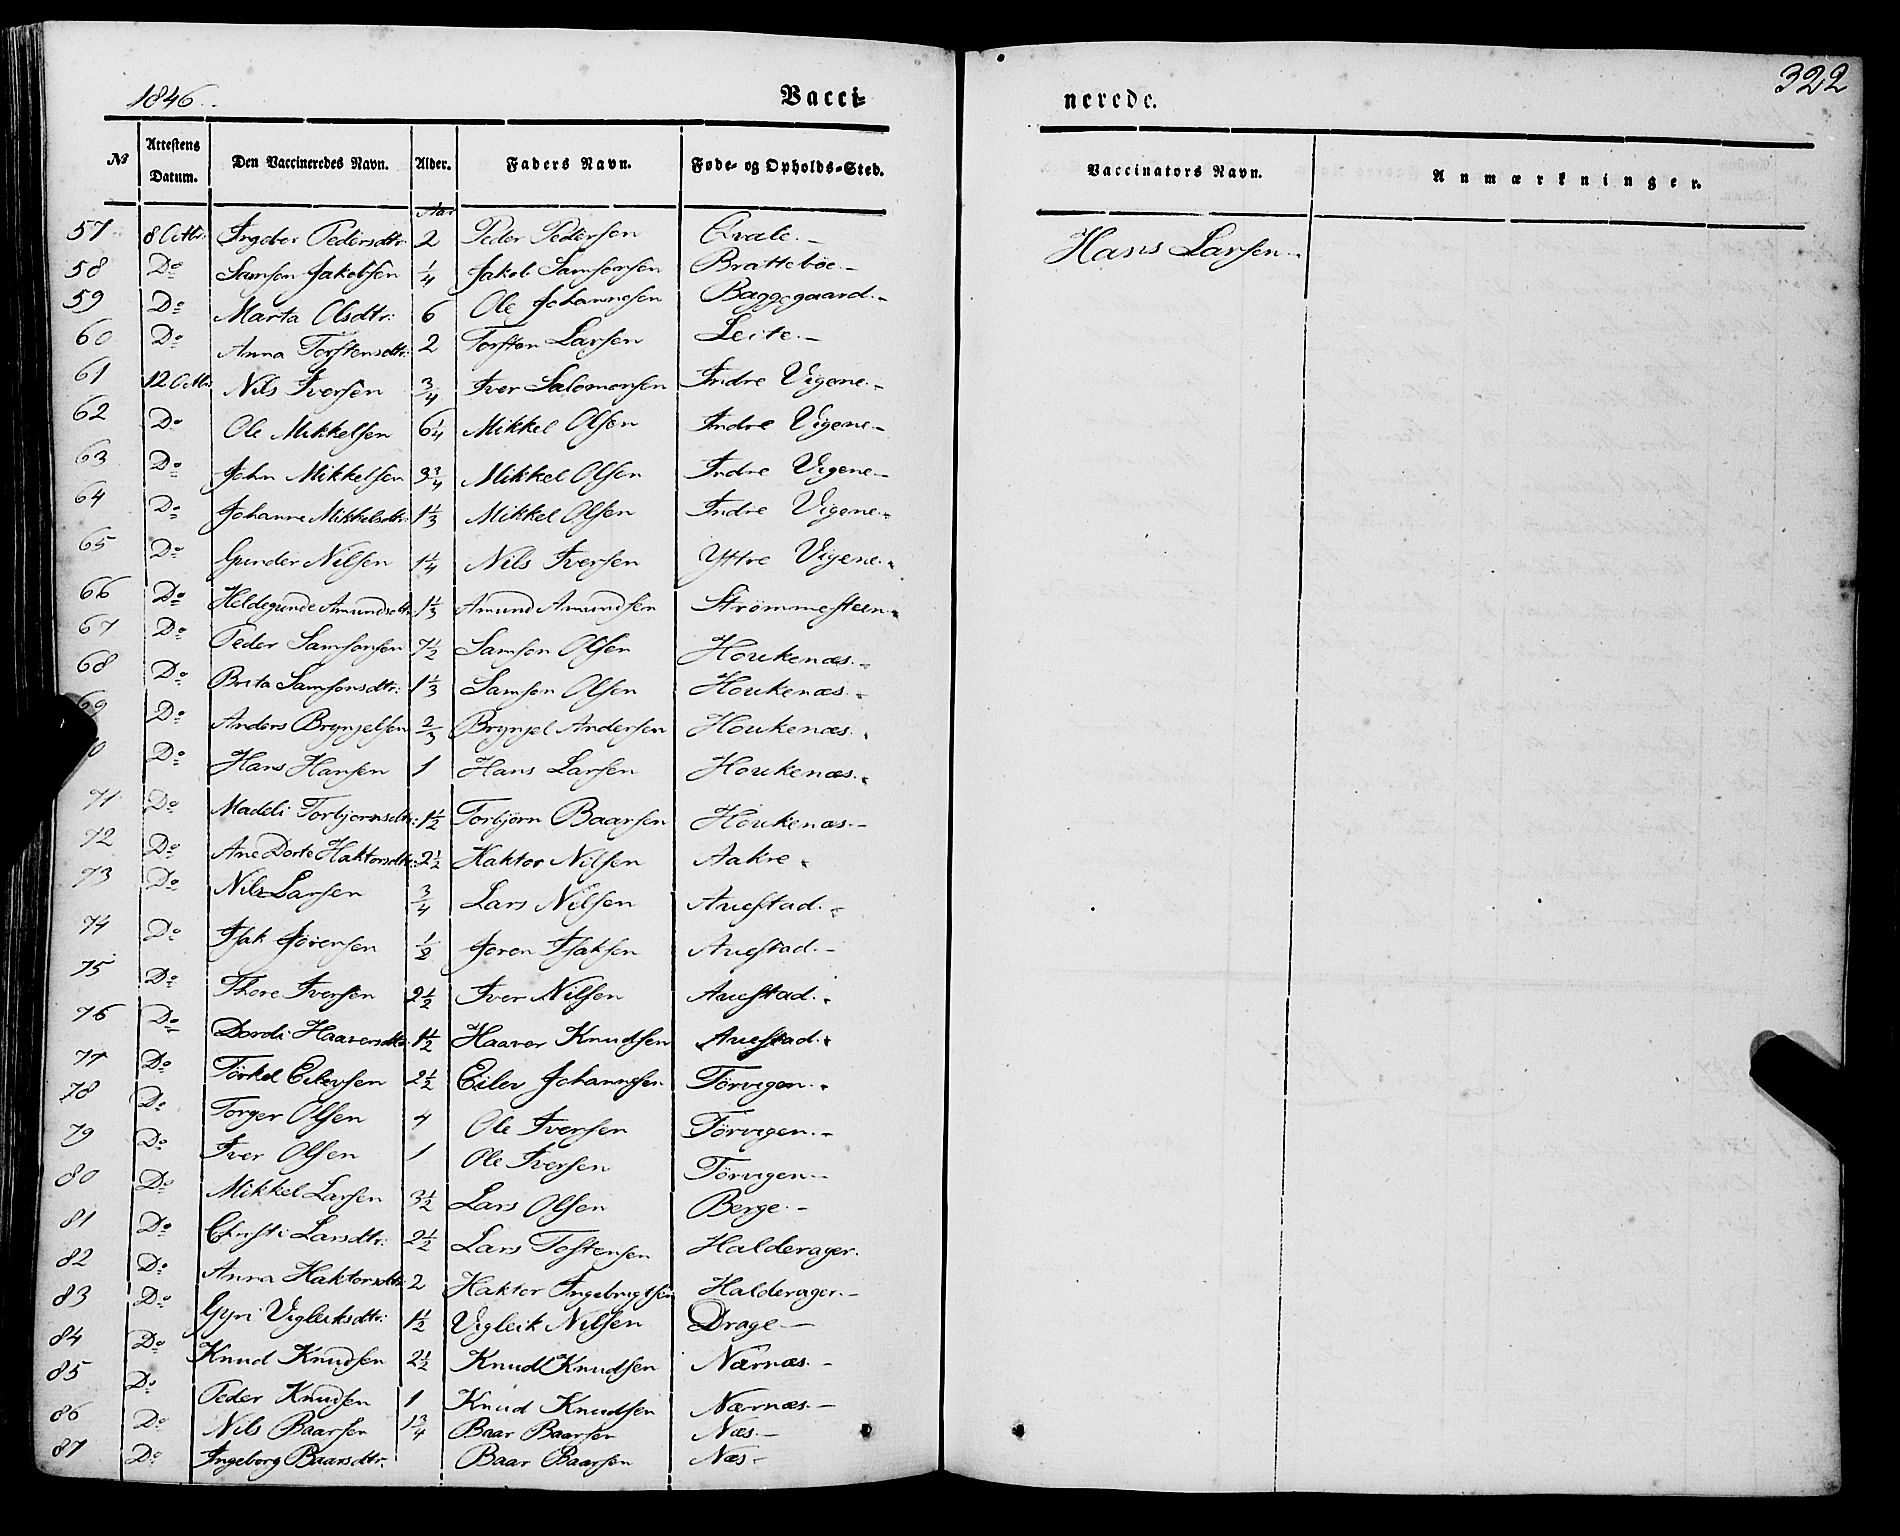 1846. Vacci- nerede. 322
№ Attestens Datum. Den Vaccineredes Navn. Alder. Faders Navn. Føde- og Opholds-Sted. Vaccinators Navn. Anmærkninger.
Aar
57 8 Octbr: Ingebor Pedersdtr. 2 Peder Pedersen Qvale. Hans Larsen
58 Do Samson Jakobsen 1/4 Jakob Samsonsen Brattebøe
59 Do Marta Olsdtr: 6 Ole Johannesen Baggegaard.
60 Do Anna Torstensdtr: 2 Torsten Larsen Leite.
61 12 Octbr Nils Iversen 3/4 Iver Salomonsen Indre Vigene.
62 Do Ole Mikkelsen 6 1/4 Mikkel Olsen Indre Vigene
63 Do John Mikkelsen 3 3/4 Mikkel Olsen Indre Vigene
64 Do Johanne Mikkelsdtr: 1 1/3 Mikkel Olsen Indre Vigene.
65 Do Gunder Nilsen 1 1/4 Nils Iversen Yttre Vigene.
66 Do Heldegunde Amundsdtr 1 1/3 Amund Amundsen Strømmesteen
67 Do Peder Samsonsen 7 1/2 Samson Olsen Houkenæs.
68 Do Brita Samsonsdtr: 1 1/3 Samson Olsen Houkenæs.
69 Do Anders Brynjelsen 2/3 Brynjel Andersen Houkenæs.
0 Do Hans Hansen 1 Hans Larsen Houkenæs.
71 Do Maddi Torbjørnsdtr: 1 1/2 Torbjørn Baarsen Houkenæs.
72 Do Ane Dorte Haktorsdtr: 2 1/2 Haktor Nilsen Aakre
73 Do Nils Larsen 3/4 Lars Nilsen Auestad.
74 Do Isak Jørensen 1/2 Jøren Isaksen Auestad.
75 Do Thore Iversen 2 1/2 Iver Nilsen Auestad.
76 Do Dordi Haaversdtr. 1 1/2 Haaver Knudsen Auestad.
77 Do Törkel Eilersen 2 1/2 Eiler Johannesen Törvigen.
78 Do Torger Olsen 4 Ole Iversen Törvigen.
79 Do Iver Olsen 1 Ole Iversen Törvigen.
80 Do Mikkel Larsen 3 1/2 Lars Olsen Berge.
81 Do Christi Larsdtr: 2 1/2 Lars Tostensen Halderager.
82 Do Anna Haktorsdtr. 2 Haktor Ingebrigtsen Halderager.
83 Do Gyri Vigleiksdtr: 1 1/2 Vigleik Nilsen Drage
84 Do Knud Knudsen 2 1/2 Knud Knudsen Nærnæs.
85 Do Peder Knudsen 1 Knud Knudsen Nærnæs.
86 Do Nils Baarsen 1 3/4 Baar Baarsen Næs.
87 Do Ingeborg Baarsdtr: Baar Baarsen Næs